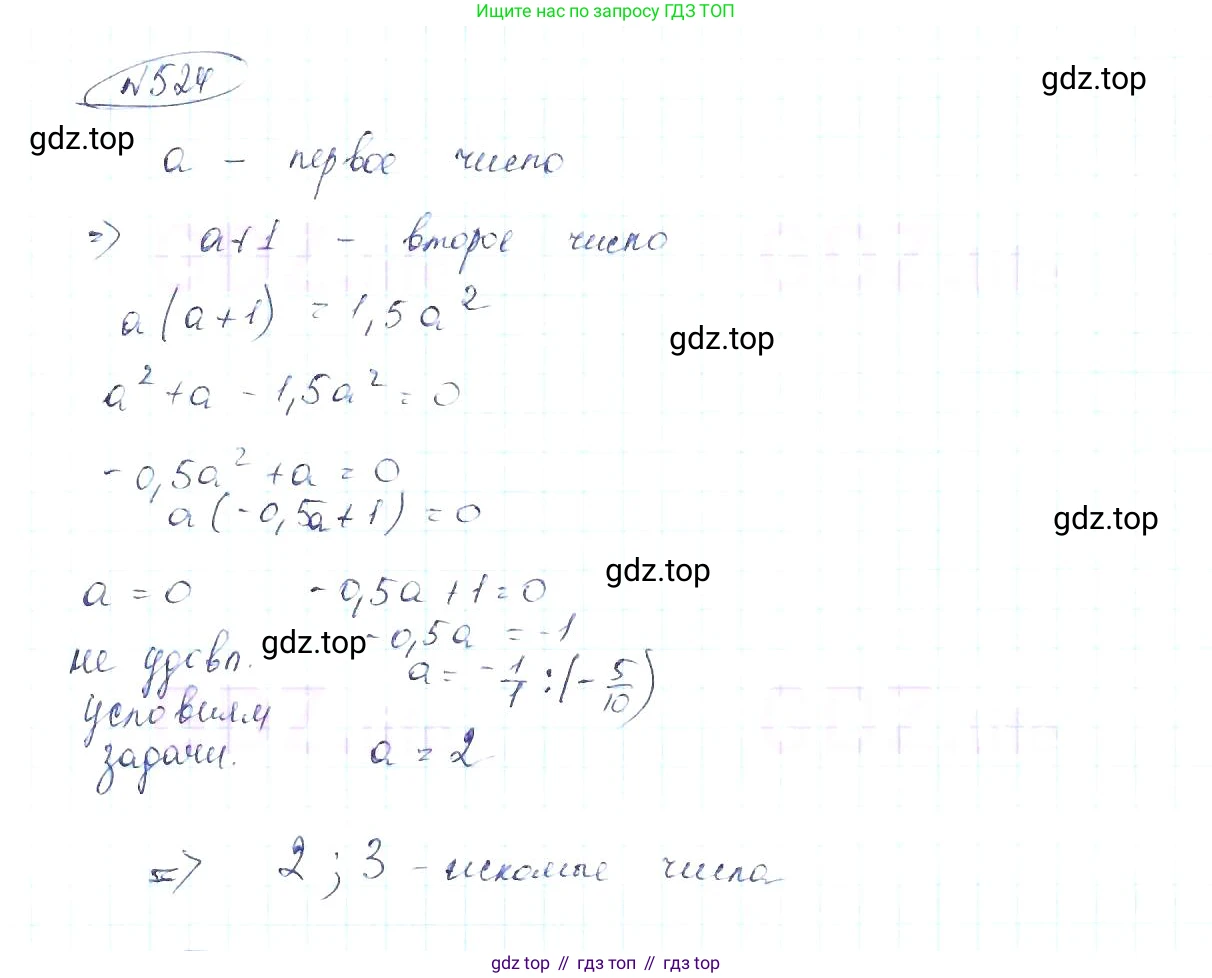 Ищите нас по запросу ГДЗ ТОП
№524
gdz.top
gdz.top
a - первое число
=> a+1 - второе число
a(a+1) = 1,5a²
gdz.top
a² + a - 1,5a² = 0
-0,5a² + a = 0
a(-0,5a+1) = 0
gdz.top
a = 0 -0,5a + 1 = 0
gdz.top
не удовл. gdz.top -0,5a = -1
условиям a = -1/1 : (-5/10)
задачи. a = 2
=> 2; 3 - искомые числа
gdz top // гдз топ // гдз top